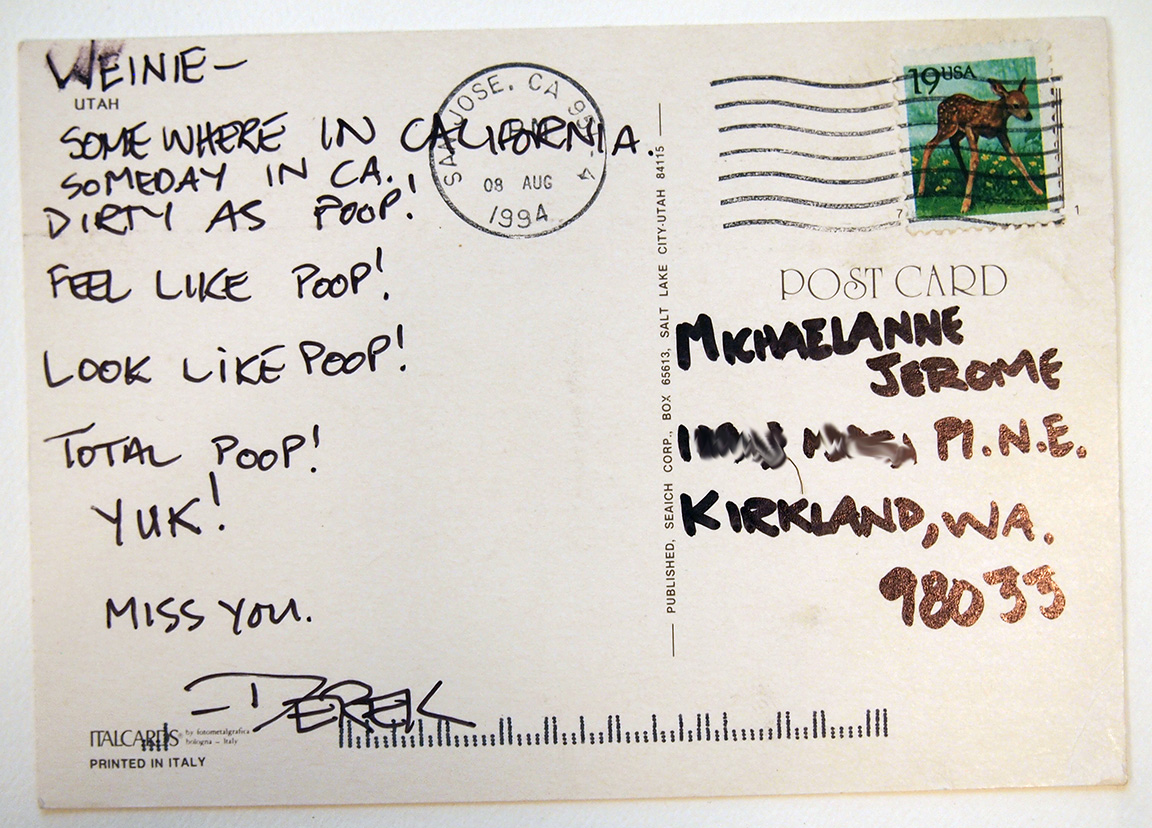 WEINIE—
UTAH
SOMEWHERE IN CALIFORNIA.
SOMEDAY IN CA.
DIRTY AS POOP!
FEEL LIKE POOP!
LOOK LIKE POOP!
TOTAL POOP!
YUK!
MISS YOU.
—DEREK
ITALCARDS by fotometalgrafica
bologna - Italy
PRINTED IN ITALY
SAN JOSE, CA 95
08 AUG
1994
PUBLISHED, SEAICH CORP., BOX 65613, SALT LAKE CITY-UTAH 84115
19 USA
7
1
POST CARD
MICHAELANNE
JEROME
Pl. N.E.
KIRKLAND, WA.
98033